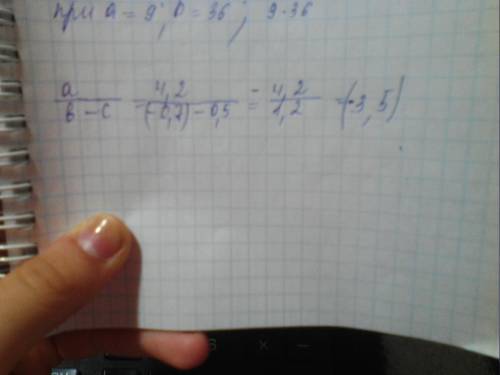 при a = 9; b = 36; 9·36
a/(b-c) = 4,2/((-0,7)-0,5) = -4,2/1,2 = (-3,5)